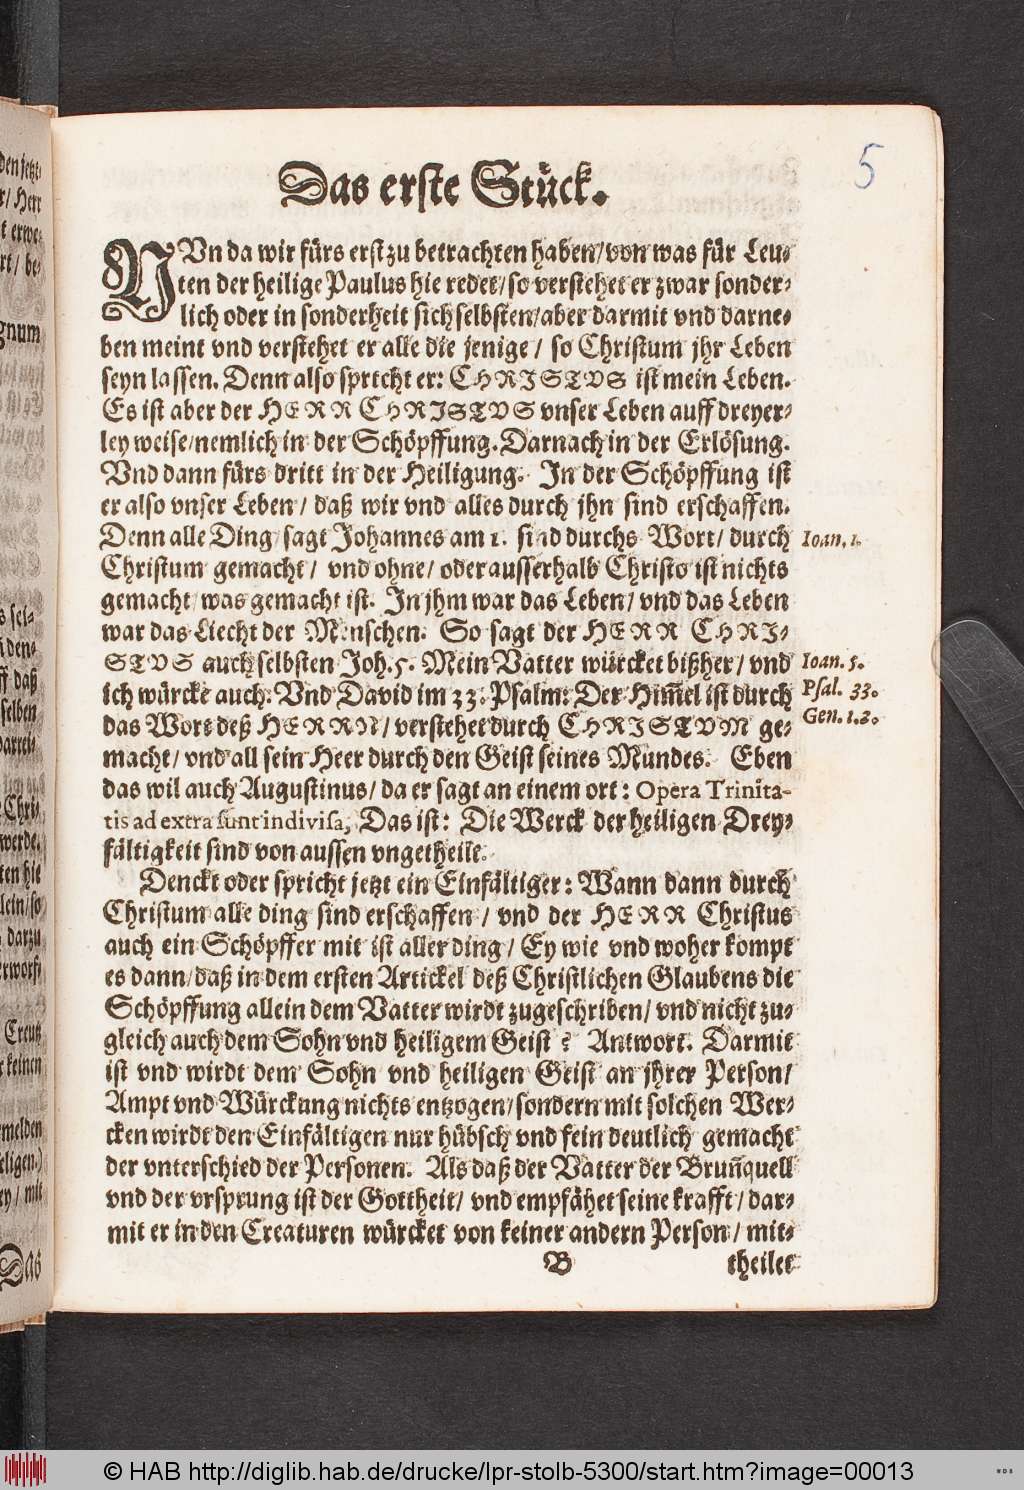 5
Das erste Stück.
NUn da wir fürs erst zu betrachten haben/ von was für Leu-
ten der heilige Paulus hie redet/ so verstehet er zwar sonder-
lich oder in sonderheit sich selbsten/ aber darmit vnd darne-
ben meint vnd verstehet er alle die jenige / so Christum jhr Leben
seyn lassen. Denn also spricht er: CHRISTVS ist mein Leben.
Es ist aber der HERR CHRISTVS vnser Leben auff dreyer-
ley weise/ nemlich in der Schöpffung. Darnach in der Erlösung.
Vnd dann fürs dritt in der Heiligung. In der Schöpffung ist
er also vnser Leben / daß wir vnd alles durch jhn sind erschaffen.
Denn alle Ding/ sagt Johannes am 1. sind durchs Wort/ durch
Ioan. 1.
Christum gemacht / vnd ohne / oder ausserhalb Christo ist nichts
gemacht/ was gemacht ist. In jhm war das Leben/ vnd das Leben
war das Liecht der Menschen. So sagt der HERR CHRI-
STVS auch selbsten Joh. 5. Mein Vatter würcket bißher/ vnd
Ioan. 5.
ich würcke auch. Vnd David im 33. Psalm: Der Him̅el ist durch
Psal. 33.
das Wort deß HERRN/ verstehet durch CHRISTVM ge-
Gen. 1. 2.
macht/ vnd all sein Heer durch den Geist seines Mundes. Eben
das wil auch Augustinus/ da er sagt an einem ort: Opera Trinita-
tis ad extra sunt indivisa, Das ist: Die Werck der heiligen Drey-
fältigkeit sind von aussen vngetheilt.
Denckt oder spricht jetzt ein Einfältiger: Wann dann durch
Christum alle ding sind erschaffen / vnd der HERR Christus
auch ein Schöpffer mit ist aller ding / Ey wie vnd woher kompt
es dann/ daß in dem ersten Artickel deß Christlichen Glaubens die
Schöpffung allein dem Vatter wirdt zugeschriben/ vnd nicht zu-
gleich auch dem Sohn vnd heiligem Geist ? Antwort. Darmit
ist vnd wirdt dem Sohn vnd heiligen Geist an jhrer Person/
Ampt vnd Würckung nichts entzogen/ sondern mit solchen Wer-
cken wirdt den Einfältigen nur hübsch vnd fein deutlich gemacht
der vnterschied der Personen. Als daß der Vatter der Brun̅quell
vnd der vrsprung ist der Gottheit/ vnd empfähet seine krafft / dar-
mit er in den Creaturen würcket von keiner andern Person / mit-
B theilet
den jetzt-
r/ Herr
t erwe-
rt / be-
gnum
s sei-
den-
ff daß
selben
Chri-
werde.
ten hie
lein/ so
darzu
rworff
Creutz
r keinen
melden
eligen.)
ey / mit
Das
© HAB http://diglib.hab.de/drucke/lpr-stolb-5300/start.htm?image=00013